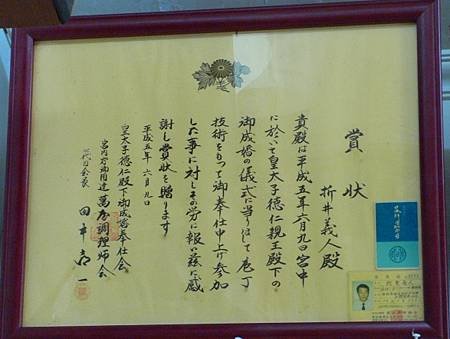 賞状
折井義人殿
貴殿は平成五年六月九日宮中
に於いて皇太子徳仁親王殿下の
御成婚の儀式に当りまして庖丁
技術をもって御奉仕申上げ参加
した事に対しその労に報い茲に感
謝し賞状を贈ります
平成五年六月九日
皇太子徳仁殿下御成婚奉仕会
宮内庁御用達 萬屋調理師会
代目会長 田中 一